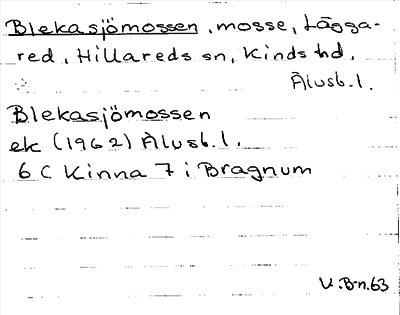 Blekasjömossen, mosse, Lägga-
red, Hillareds sn, Kinds hd,
Älvsb. l.
Blekasjömossen
ek (1962) Älvsb. l.
6 C Kinna 7 i Bragnum
V. B-n. 63